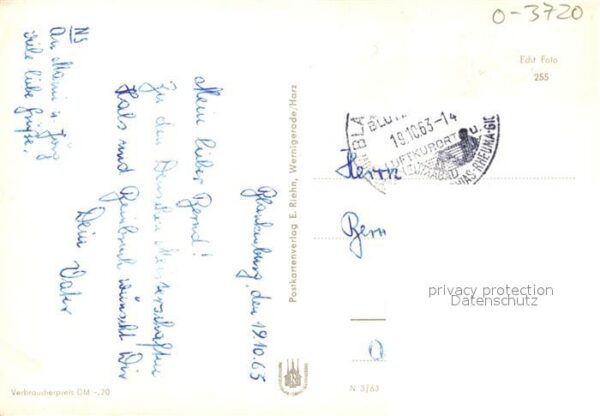 O-3720
Echt Foto
255
Blankenburg, den 19.10.63
Mein lieber Bernd!
Zu den Deutschen Meisterschaften
Hals und Beinbruch wünscht Dir
Dein Vater
NS
An Mami u. Jörg
viele liebe Grüße.
Postkartenverlag E. Riehn, Wernigerode/Harz
BLA
19.10.63-14
LUFTKURORT u.
RHEUMA-GIC
Herrn
Bern
privacy protection
Datenschutz
Verbraucherpreis DM -,20
N 3/63